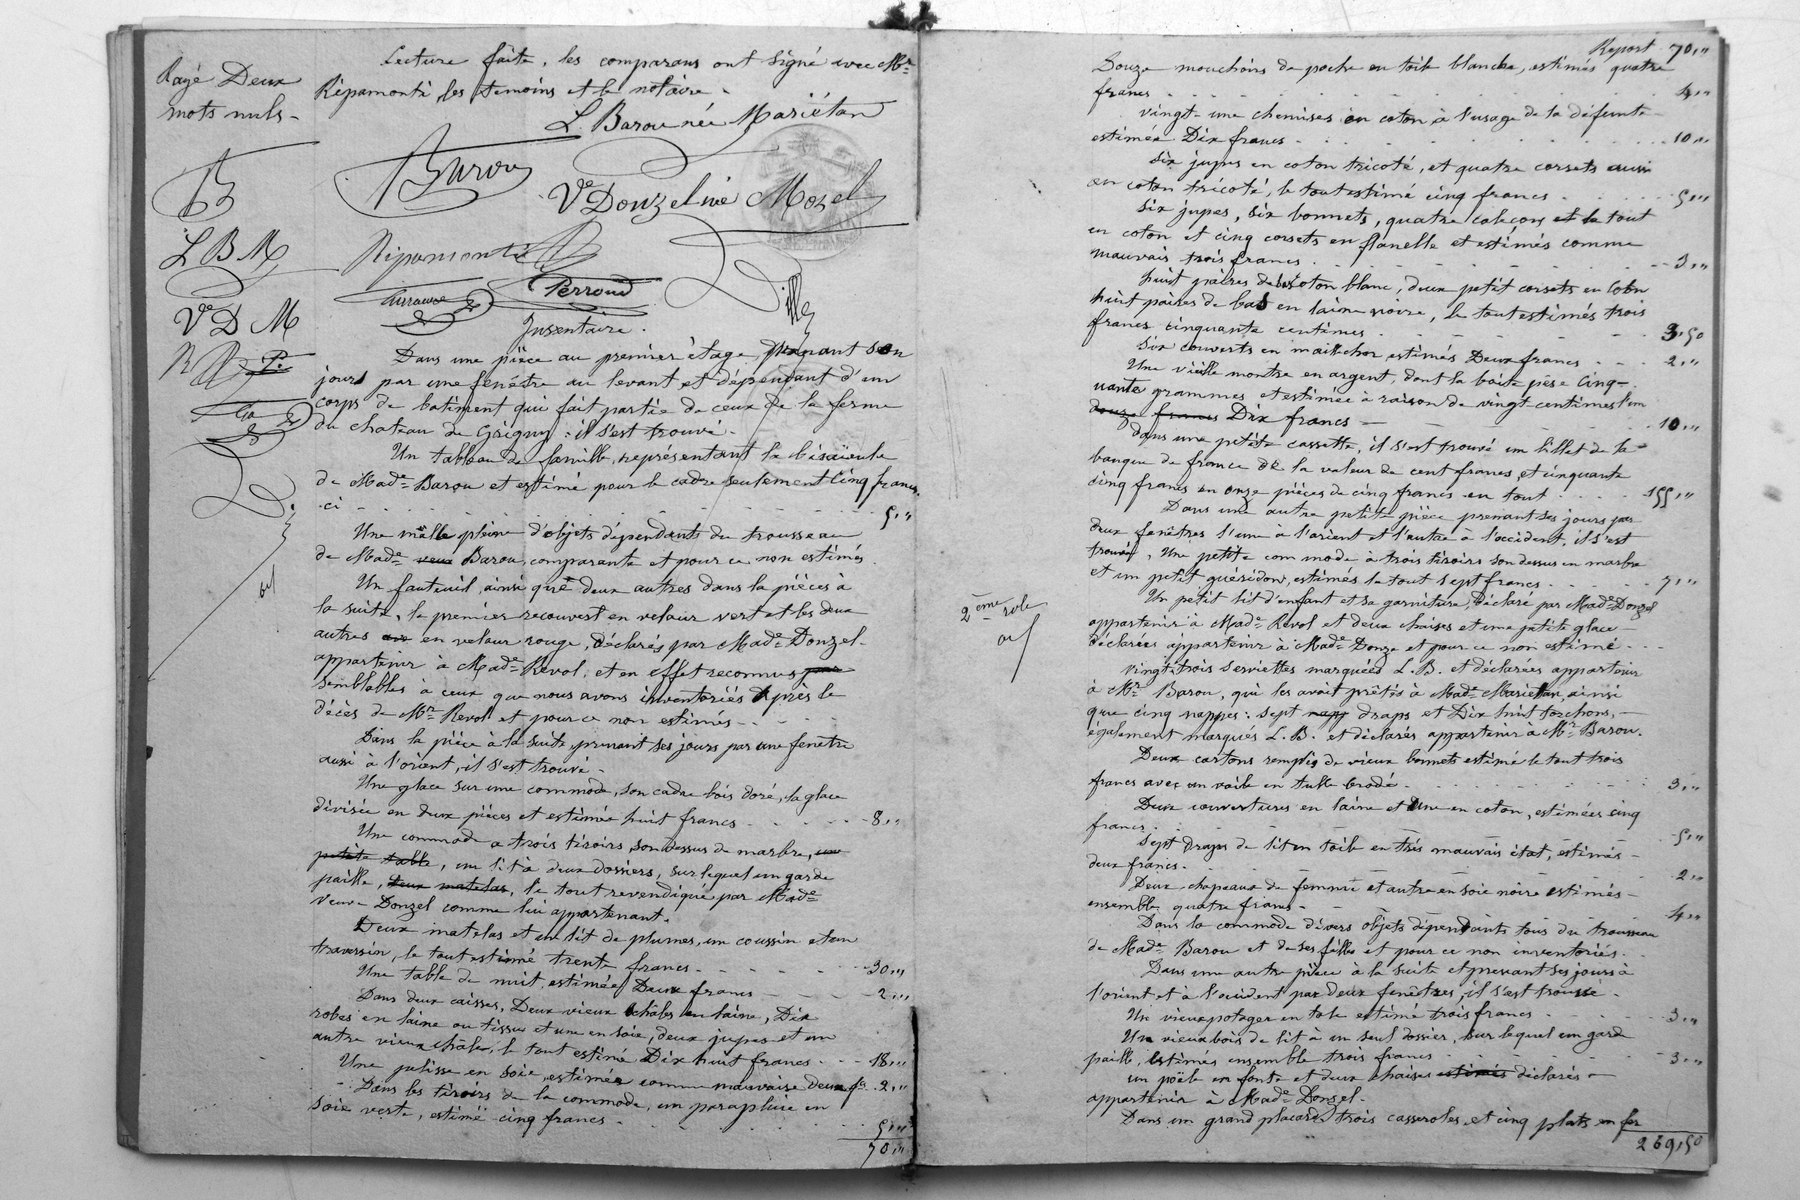 Rayé Deux
mots nuls -
B
L B M
Ve D M
R
P.
Lecture faite, les comparans ont signé avec Mr
Ripamonti les témoins et le notaire -
L Barou née Mariétan
Barou
Ve Donzel née Mozel
Ripamonti
Perroud
Inventaire.
Dans une pièce au premier étage, prenant son
jours par une fenêtre au levant et dépendant d'un
corps de batiment qui fait partie de ceux de la ferme
du chateau de Grigny : il s'est trouvé.
Un tableau de famille, représentant la bisaïeule
de Made Barou et estimé pour le cadre seulement Cinq francs.
ci - 5 "
Une malle pleine d'objets dépendants du trousseau
de Made veuve Barou, comparante et pour ce non estimés.
Un fauteuil ainsi que deux autres dans la pièces à
la suite, le premier recouvert en velour vert et les deux
autres en velour rouge, déclarés par Made Donzel
appartenir à Made Revol, et en effet reconnus par
semblables à ceux que nous avons inventoriés après le
décès de Mr Revol et pour ce non estimés - -
Dans la pièce à la suite prenant ses jours par une fenêtre
aussi à l'orient, il s'est trouvé -
Une glace sur une commode, son cadre bois doré, la glace
divisée en deux pièces et estimée huit francs - 8 "
Une commode a trois tiroirs, son dessus de marbre, une
petite table, un lit à deux dossiers, sur lequel un garde
paille, deux matelas, le tout revendiqué par Made
Veuve Donzel comme lui appartenant.
Deux matelas et un lit de plumes, un coussin et un
traversin, le tout estimé trente francs - 30 "
Une table de nuit, estimée Deux francs - 2 "
Dans deux caisses, Deux vieux châles en laine, Dix
robes en laine ou tissus et une en soie, deux jupes et un
autre vieux châle, le tout estimé Dix huit francs - 18 "
Une pelisse en soie, estimée comme mauvaise deux fs. 2 "
Dans les tiroirs de la commode, un parapluie en
soie verte, estimé cinq francs - 5 "
70 "
Report 70 "
Douze mouchoirs de poche en toile blanche, estimés quatre
francs - 4 "
Vingt-une chemises en coton à l'usage de la défunte
estimées Dix francs - 10 "
Six jupes en coton tricoté, et quatre corsets aussi
en coton tricoté, le tout estimé cinq francs - 5 "
Six jupes, six bonnets, quatre caleçons et le tout
en coton et cinq corsets en flanelle et estimés comme
mauvais trois francs - 3 "
huit paires de bas coton blanc, deux petit corsets en coton
huit paires de bas en laine noire, le tout estimés trois
francs cinquante centimes - 3,50
Six couverts en maillchor estimés Deux francs - 2 "
Une vieille montre en argent, dont la boite pèse Cinq-
uante grammes et estimée à raison de vingt centimes l'un
douze francs Dix francs - 10 "
Dans une petite cassette, il s'est trouvé un billet de la
banque de france de la valeur de cent francs, et cinquante
cinq francs en onze pièces de cinq francs en tout - 155 "
Dans une autre petite pièce prenant ses jours par
deux fenêtres l'une à l'orient et l'autre à l'occident, il s'est
trouvé, Une petite commode à trois tiroirs son dessus en marbre
et un petit guéridon, estimés le tout sept francs - 7 "
2ème role
Un petit lit d'enfant et sa garniture, Déclaré par Made Donzel
appartenir à Made Revol et deux chaises et une petite glace
déclarées appartenir à Made Donze et pour ce non estimé -
Vingt-trois serviettes marquées L.B. et déclarées appartenir
à Mr Barou, qui les avait prêtés à Made Mariétan, ainsi
que cinq nappes : sept napp draps et Dix huit torchons, -
également marqués L.B. et déclarés appartenir à Mr Barou.
Deux cartons remplis de vieux bonnets estimé le tout trois
francs avec un voile en tulle brodé - 3 "
Deux couvertures en laine et Une en coton, estimées cinq
francs - 5 "
Sept Draps de lit en toile en très mauvais état, estimés -
deux francs - 2 "
Deux chapeaux de femme et autre en soie noire estimés -
ensemble quatre francs - 4 "
Dans la commode divers objets dépendants tous du trousseau
de Made Barou et de ses filles et pour ce non inventoriés -
Dans une autre pièce à la suite et prenant ses jours à
l'orient et à l'occident par deux fenêtres, il s'est trouvé -
Un vieux potager en tole estimé trois francs - 3 "
Un vieux bois de lit à un seul dossier, sur lequel un garde
paille, Estimés ensemble trois francs - 3 "
un poële en fonte et deux chaises estimés déclarés -
appartenir à Made Donzel -
Dans un grand placard, trois casseroles, et cinq plats en fer
269,50